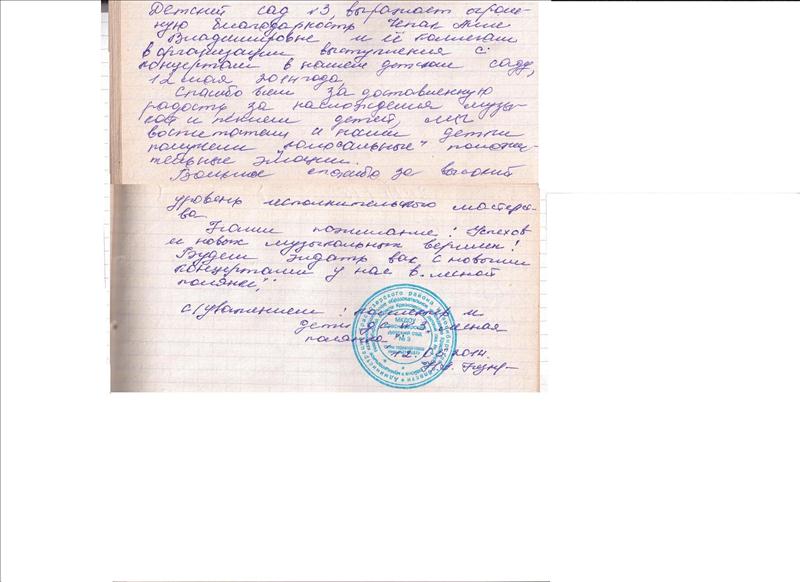 Детский сад №3 выражает огром-
ную благодарность Чепак Инне
Владимировне и её коллегам
в организации выступления с
концертами в нашем детском саду,
12 мая 2014 года,
Спасибо Вам за доставленную
радость за наслождения музы-
кой и пением детей, мы
воспитатели и наши детки
получили „колосальные" положи-
тельные эмоции.
Большое спасибо за высокий
уровень исполнительского мастерс-
ва
Наши пожелание! Успехов
и новых музыкальных вершин!
Будем ждать вас с новыми
концертами у нас в „лесной
полянке"
с уважением: коллектив и
дети д/с №3 „лесная
полянка"
12.05.2014.
МКДОУ
детский сад
№ 3